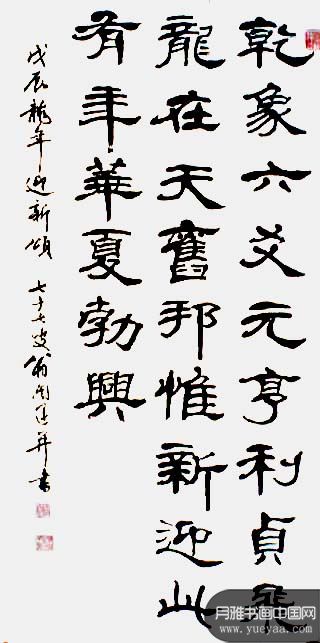 乾象六爻元亨利貞飛
龍在天舊邦惟新迎此
有年華夏勃興
戊辰龍年迎新頌 七十七叟翁闓運并書
月雅书画中国网
www.yueyaa.com